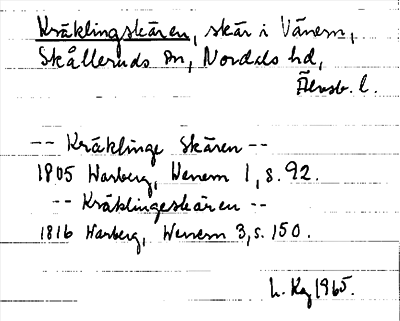 Kräklingskären, skär i Vänern,
Skålleruds sn, Nordals hd,
Älvsb. l.
-- Kräklinge Skären --
1805 Warberg, Wenern 1, s. 92.
-- Kräklingeskären --
1816 Warberg, Wenern 3, s. 150.
1965.